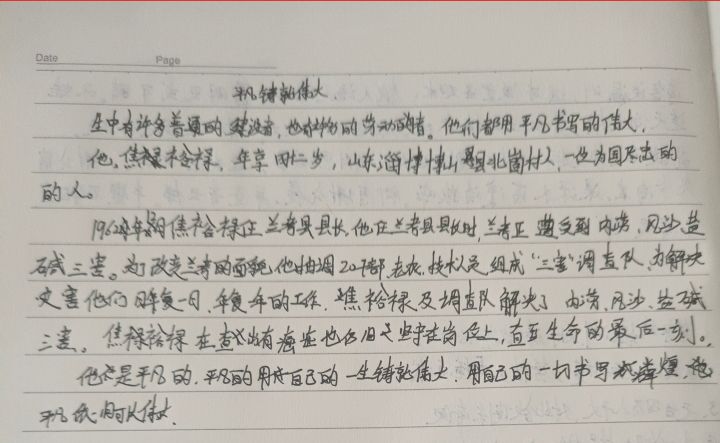 Date Page
平凡铸就伟大
生中有许多普通的建设者,也有许多的劳动的者。他们都用平凡书写的伟大,
他,焦裕禄,年享四二岁,山东淄博博山县北崮村人,一位为国尽出的
的人。
1962年焦裕禄任兰考县县长,他在兰考县县长时,兰考正遭受到内涝,风沙盐
碱三害。为了改变兰考的面貌,他抽调20干部,老农,技术人员组成“三害”调查队,为解决
灾害他们日复一日,年复年的工作,焦裕禄及调查队解决了内涝,风沙,盐碱
三害。焦裕禄在查出有癌症也仍旧坚守在岗位上,直至生命的最后一刻。
他是平凡的,平凡的用自己的一生铸就伟大,用自己的一切书写辉煌,他
平凡成就伟大.